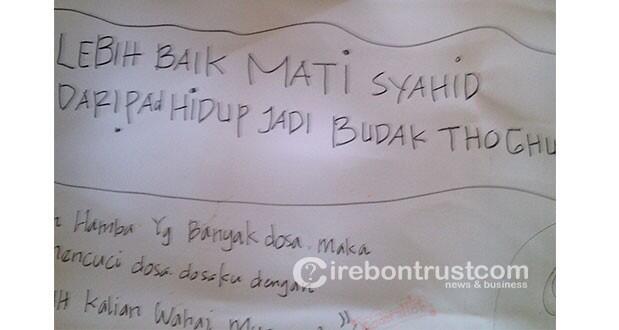 LEBIH BAIK MATI SYAHID
DARIPAd HIDUP JADI BUDAK THOGHU
Hamba Yg Banyak dosa. maka
mencuci dosa-dosaku dengan
Kalian Wahai
Cirebontrustcom
news & business